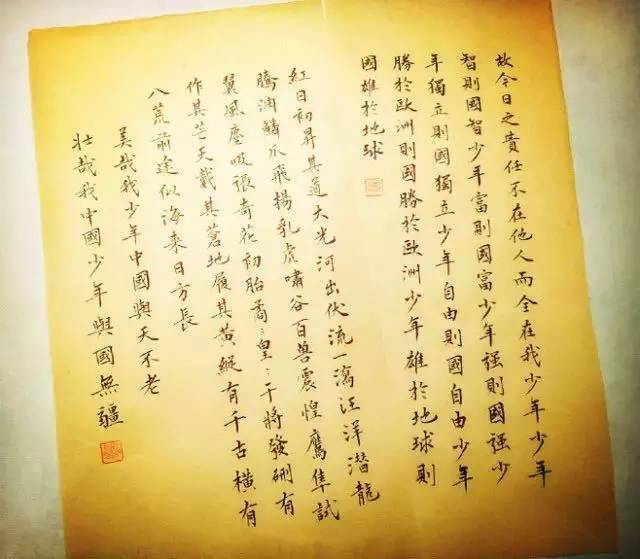 故今日之責任不在他人而全在我少年少年
智則國智少年富則國富少年强則國强少
年獨立則國獨立少年自由則國自由少年
勝於歐洲則國勝於歐洲少年雄於地球則
國雄於地球
紅日初昇其道大光河出伏流一瀉汪洋潜龍
騰淵鱗爪飛揚乳虎嘯谷百兽震惶鷹隼試
翼風塵吸張奇花初胎矞:皇:干將發硎有
作其芒天戴其蒼地履其黃縱有千古橫有
八荒前途似海来日方長
美哉我少年中國與天不老
壯哉我中國少年與國無疆